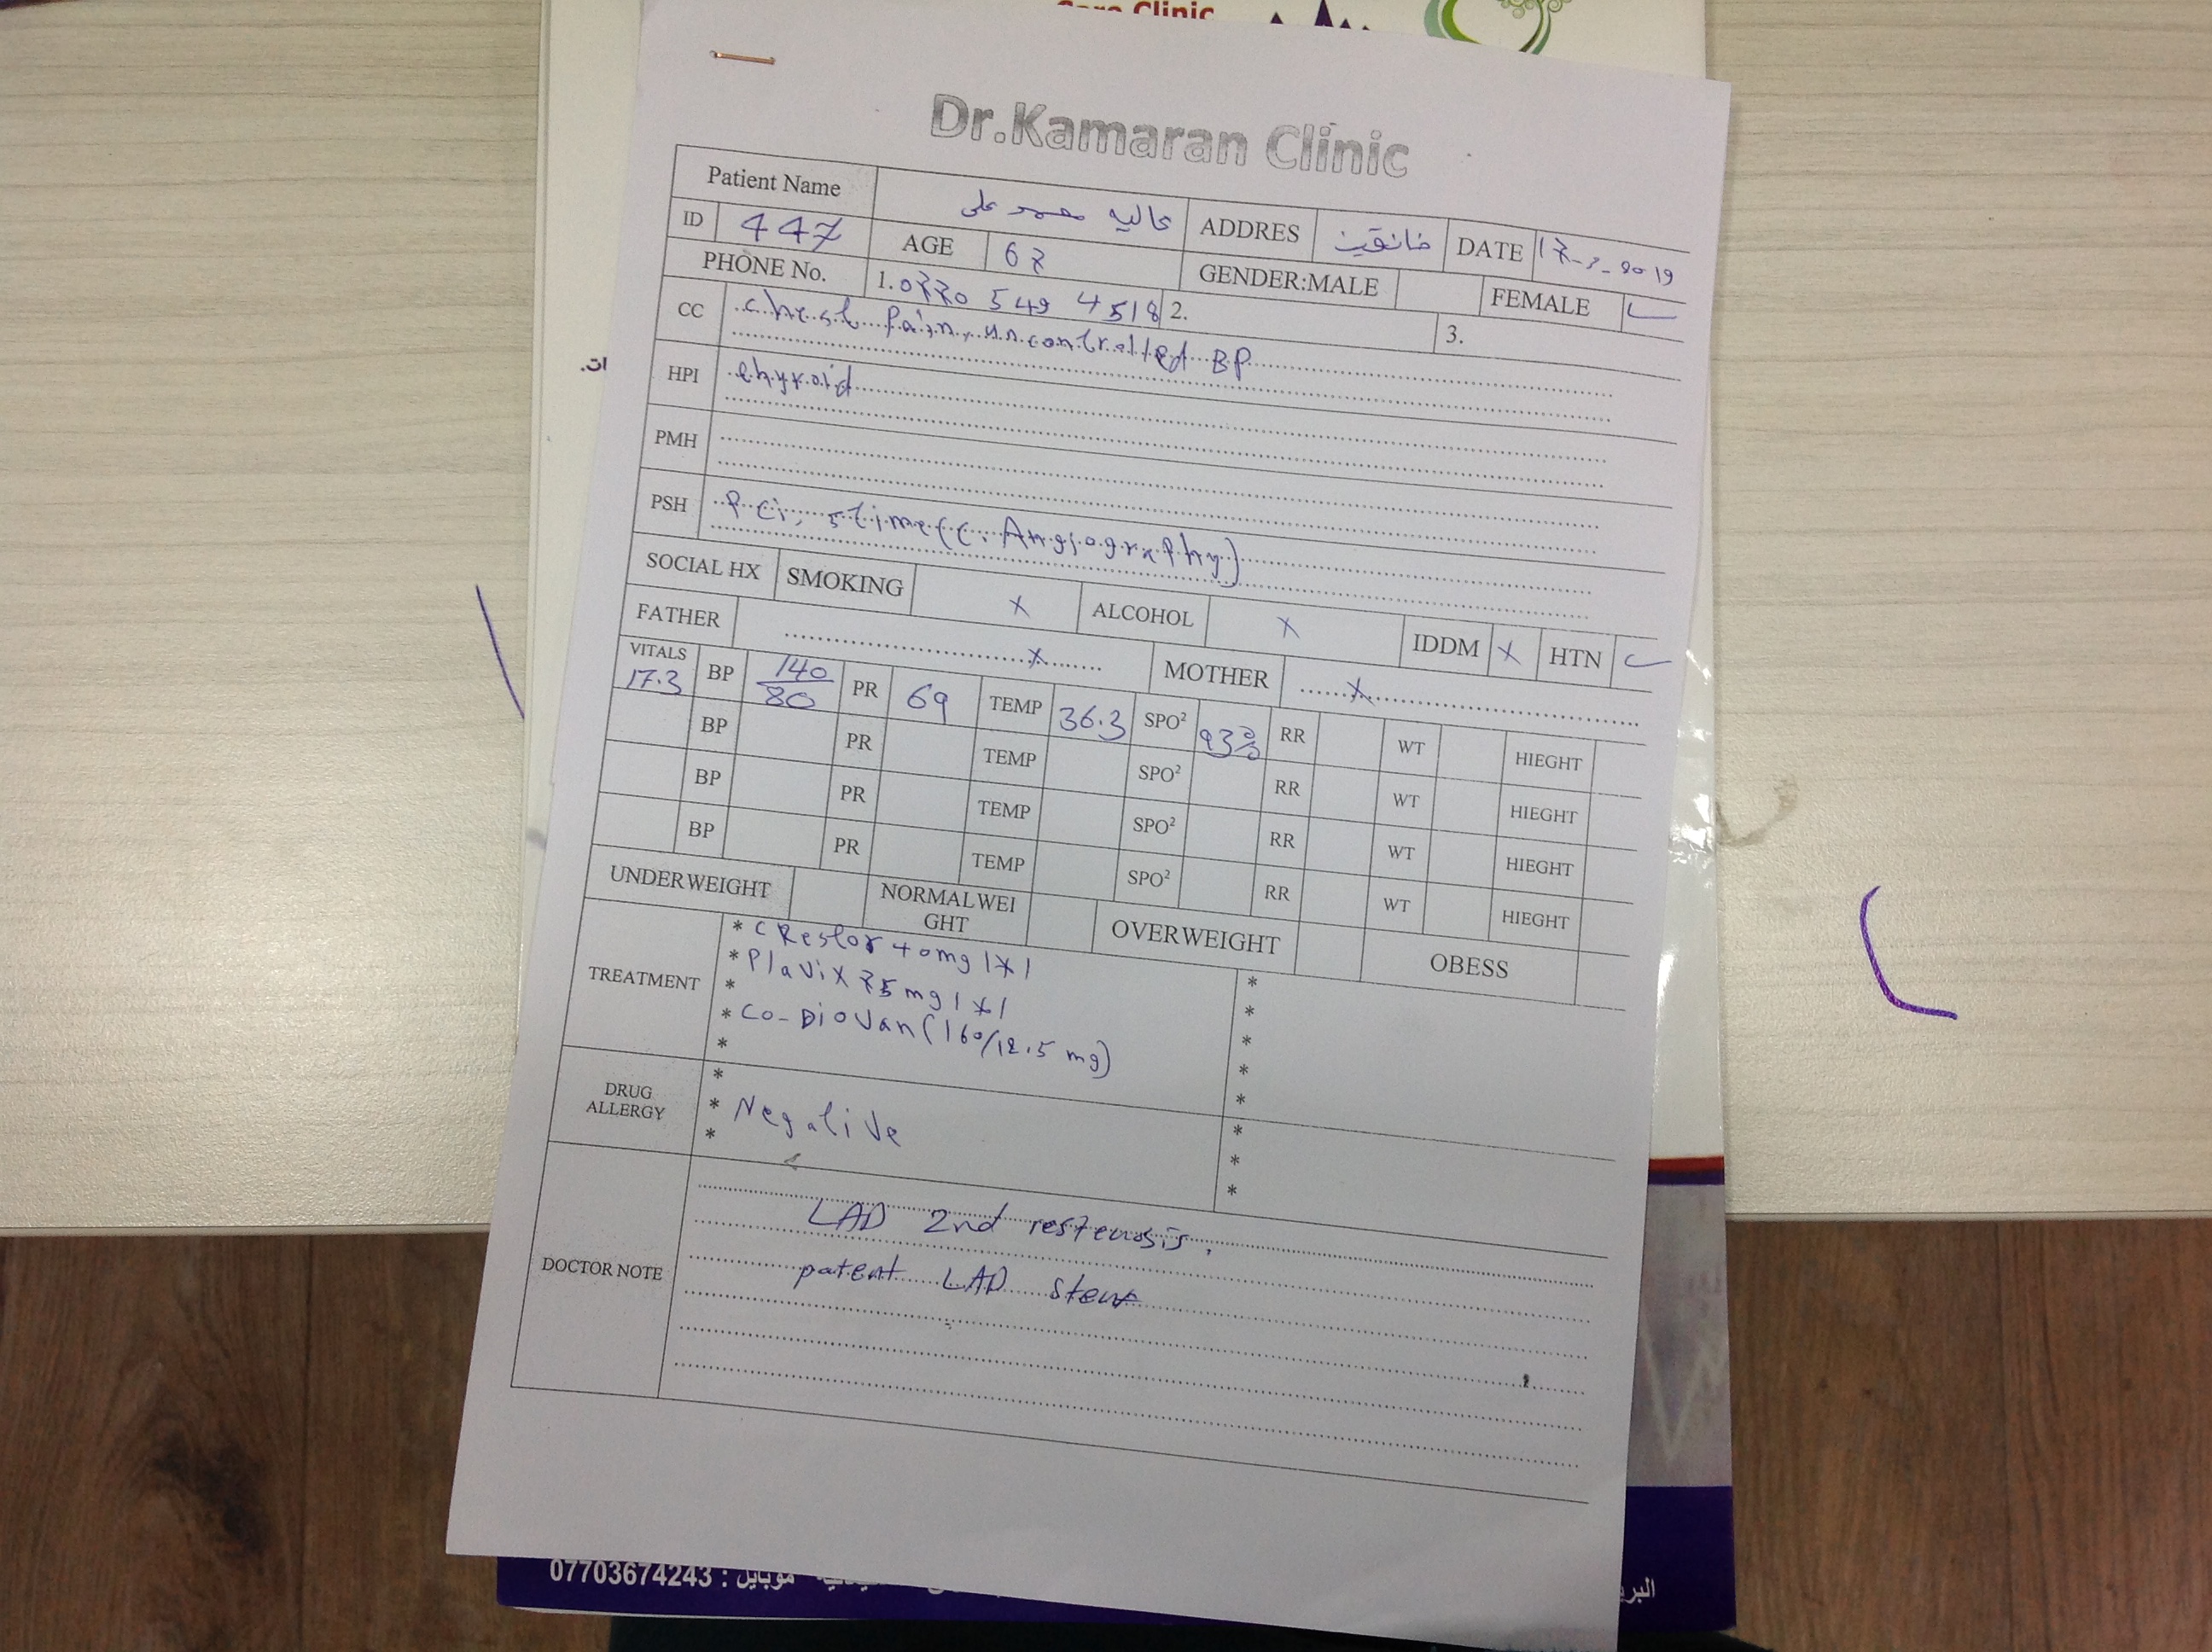 Care Clinic
Dr.Kamaran Clinic
Patient Name عاليه محمد على ADDRES خانقين DATE 17-3-2019
ID 447 AGE 67 GENDER:MALE FEMALE
PHONE No. 1.0770 549 4518 2. 3.
CC chest Pain, un controlled BP
HPI thyroid
PMH
PSH Pci, 5time (C. Angiography)
SOCIAL HX SMOKING X ALCOHOL X IDDM X HTN
FATHER X MOTHER X
VITALS 17.3 BP 140/80 PR 69 TEMP 36.3 SPO² 93% RR WT HIEGHT
BP PR TEMP SPO² RR WT HIEGHT
BP PR TEMP SPO² RR WT HIEGHT
BP PR TEMP SPO² RR WT HIEGHT
UNDERWEIGHT NORMALWEIGHT OVERWEIGHT OBESS
TREATMENT
* CRestor 40mg 1X1 *
* Plavix 75mg 1X1 *
* *
* Co-Diovan (160/12.5 mg) *
* *
DRUG ALLERGY
* *
* Negative *
* *
DOCTOR NOTE
LAD 2nd restenosis.
patent LAD stent
07703674243 : موبايل